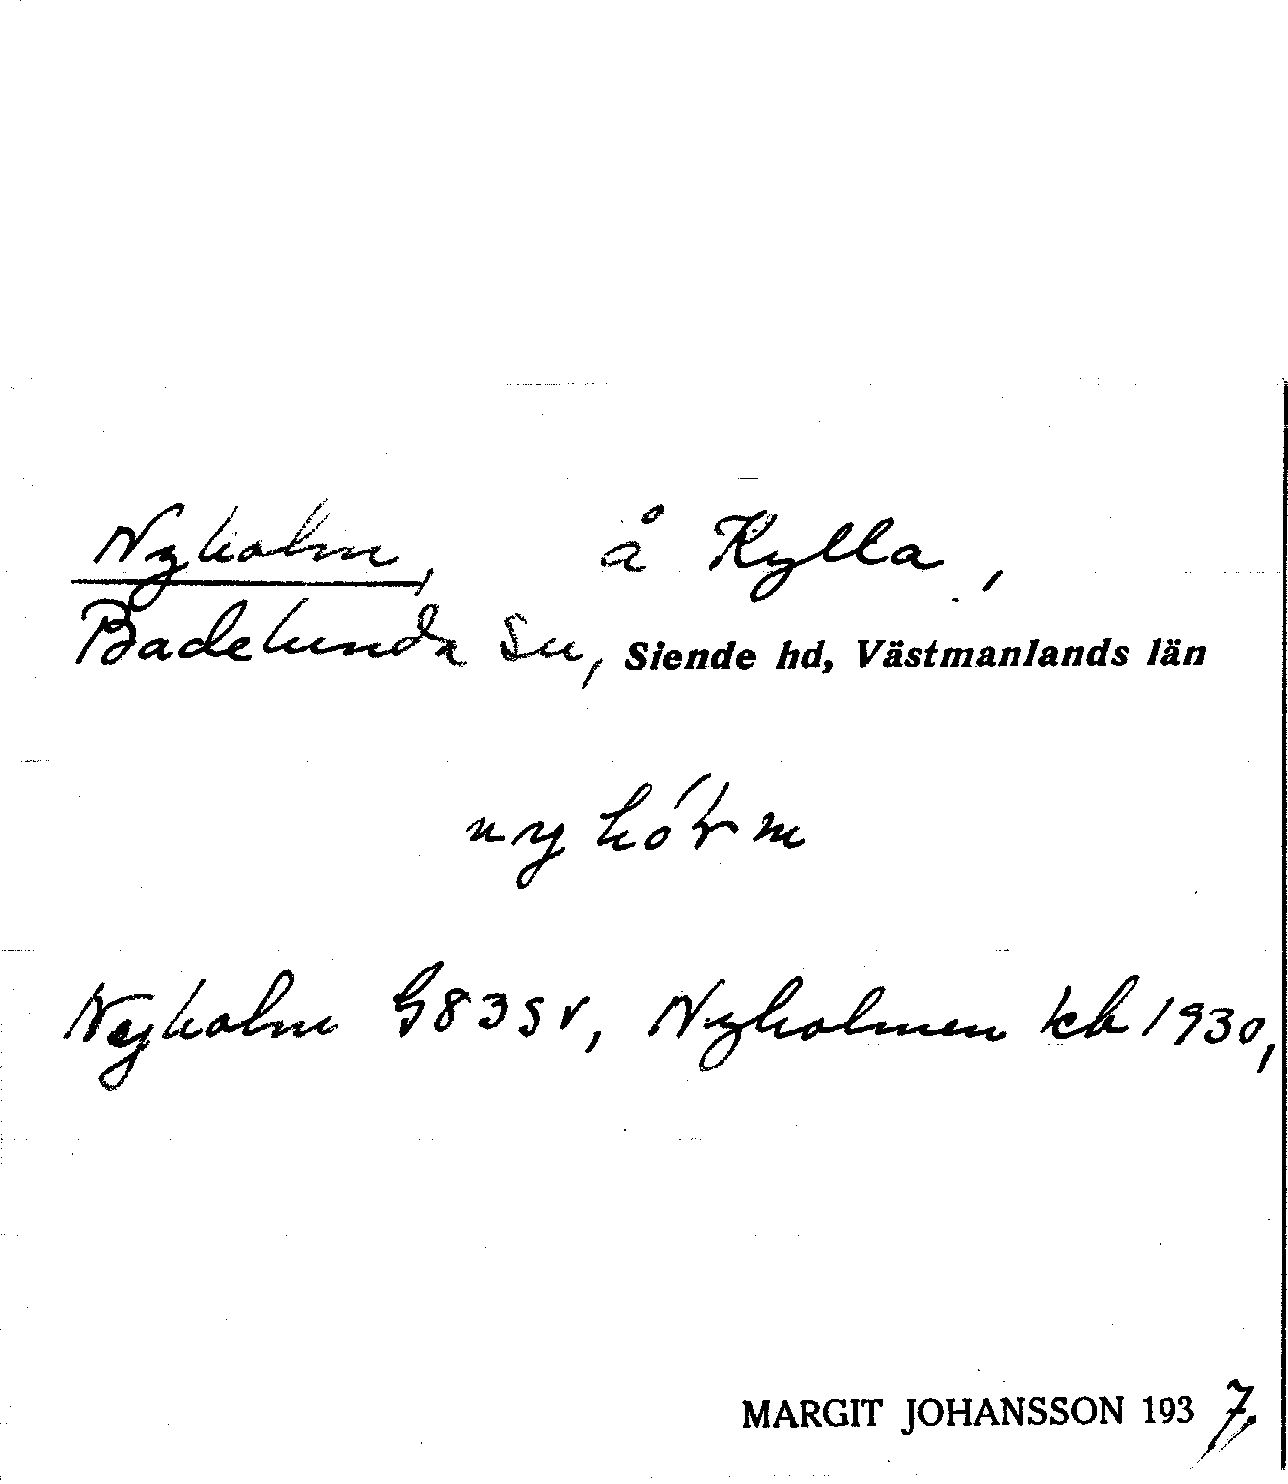 Nyholm, å Kylla,
Badelunda sn, Siende hd, Västmanlands län
nyhó m
Nyholm G83SV, Nyholmen kb 1930,
MARGIT JOHANSSON 1937.